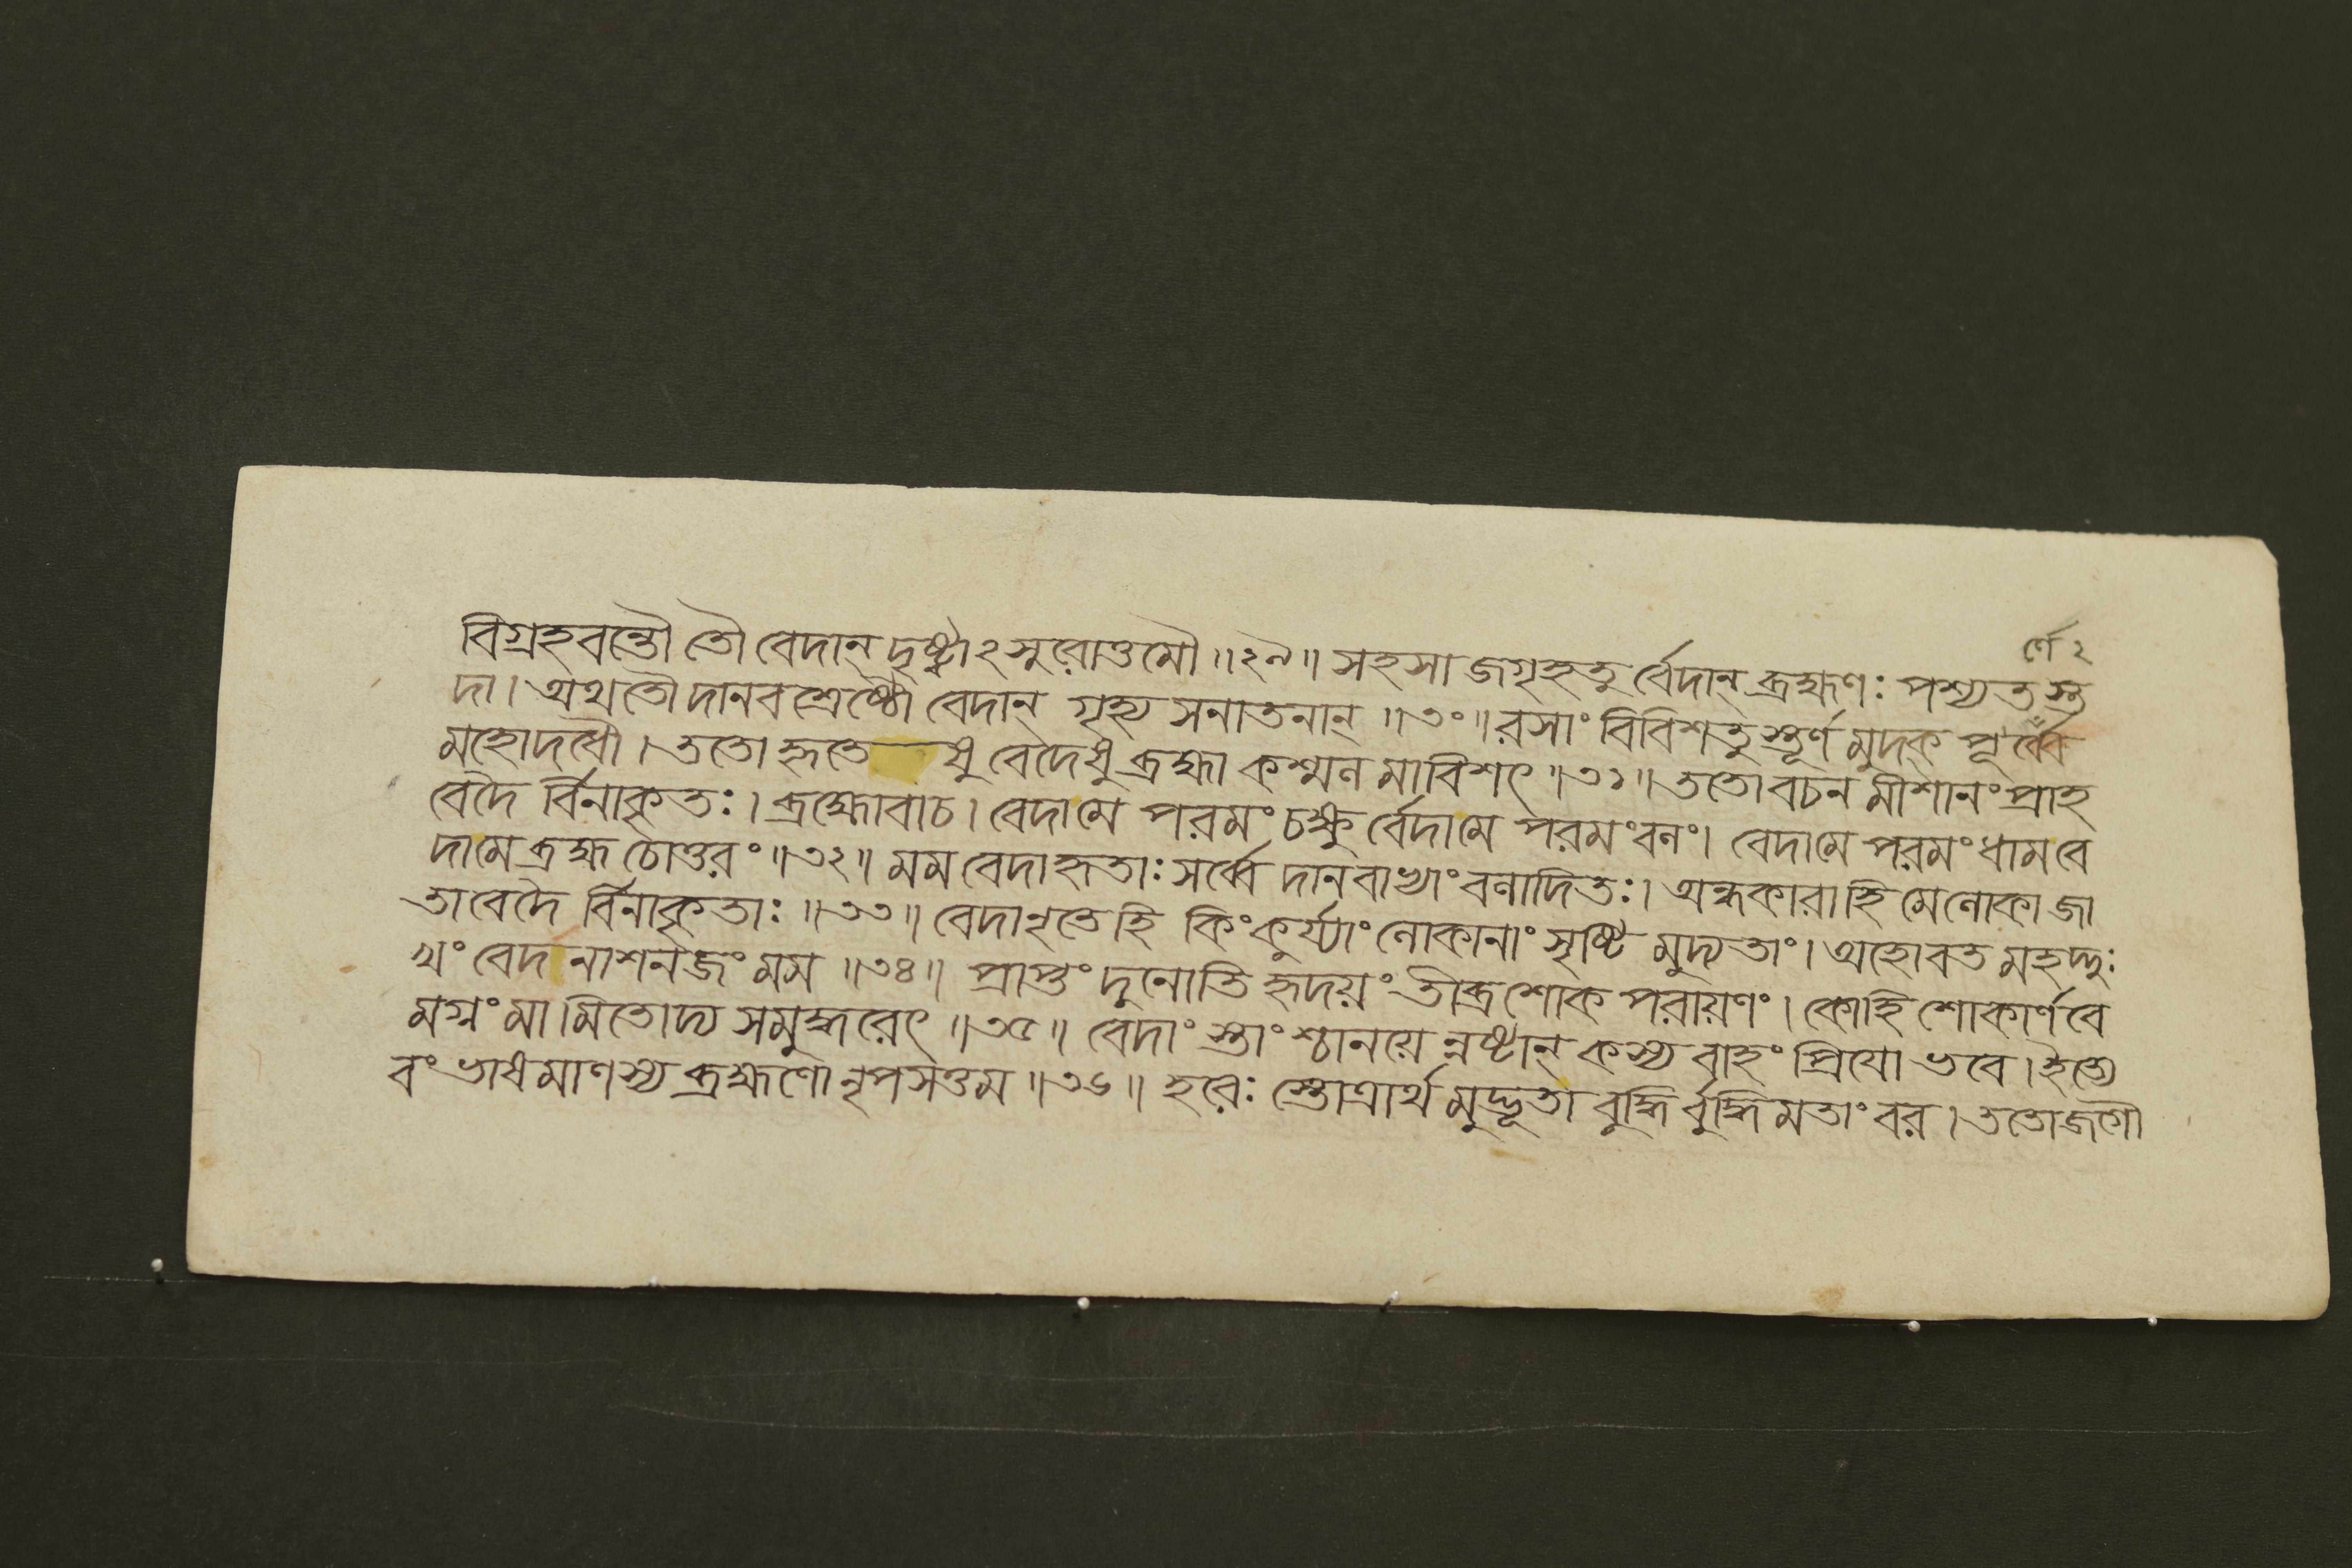 র্ণে ২
বিগ্রহবন্তৌ তৌ বেদান্ দৃষ্ট্বাঽসুরোত্তমৌ ॥২৯॥ সহসা জগৃহতু র্ব্বেদান্ ব্রহ্মণঃ পশ্যতস্ত
দা। অথ তৌ দানবশ্রেষ্ঠৌ বেদান্ গৃহ্য সনাতনান্ ॥৩০॥ রসাং বিবিশতু স্তূর্ণ মুদক্ পূর্ব্বে
মহোদধৌ। ততো হৃতে ষু বেদেষু ব্রহ্মা কশ্মল মাবিশৎ ॥৩১॥ ততো বচন মীশানং প্রাহ
বেদৈ র্বিনাকৃতঃ। ব্রহ্মোবাচ। বেদামে পরমং চক্ষু র্ব্বেদামে পরমং বলং। বেদামে পরমং ধাম বে
দামে ব্রহ্ম চোত্তরং ॥৩২॥ মম বেদা হৃতাঃ সর্ব্বে দানবাভ্যাং বলাদিতঃ। অন্ধকারা হি মে লোকা জা
তা বেদৈ র্বিনাকৃতাঃ ॥৩৩॥ বেদানৃতে হি কিং কুর্য্যাং লোকানাং সৃষ্টি মুদ্যতাং। অহোবত মহদ্দুঃ
খং বেদনাশনজং মম ॥৩৪॥ প্রাপ্তং দুনোতি হৃদয়ং তীব্রশোক পরায়ণং। কোহি শোকার্ণবে
মগ্নং মামিতোদ্য সমুদ্ধরেৎ ॥৩৫॥ বেদাংস্তাংশ্চানয়ে ন্নষ্টান্ কস্য বাহং প্রিযো ভবে। ইত্যে
বং ভাষমাণস্য ব্রহ্মণো নৃপসত্তম ॥৩৬॥ হরেঃ স্তোত্রার্থ মুদ্ভূতা বুদ্ধি র্বুদ্ধিমতাং বর। ততো জগৌ